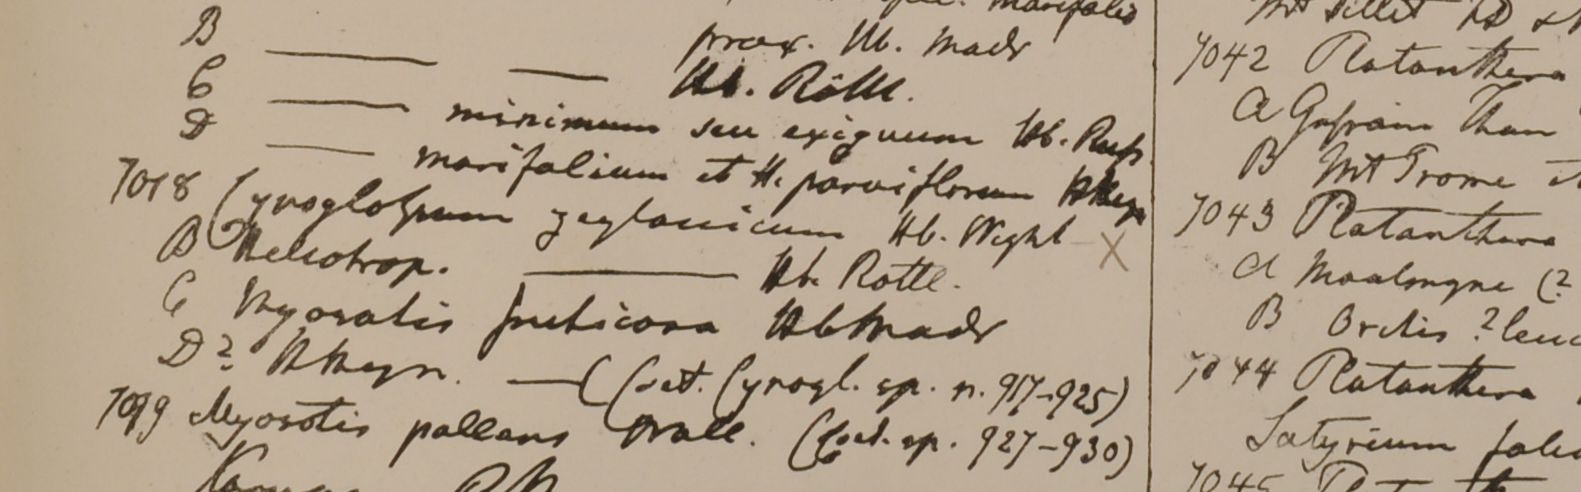 marifolio
B prox. Hb. Madr
C Hb. Rottl.
D minimum seu exiguum Hb.
marifolium et H. parviflorum HHeyn
7018 Cynoglossum zeylanicum Hb. Wight X
B Heliotrop. Hb. Rottl.
C Myosotis fruticosa Hb Madr
D? HHeyn. (Cset. Cynogl. sp. n. 917-925)
7019 Myosotis pallens Wall. (Cset. sp. 927-930)
Mt Sillet HD &
7042 Platanthera
A Gossain Than
B Mt Prome
7043 Platanthera
A Moalmyne (?
B Orchis ?leuc
7044 Platanthera
Satyrium
7045 Platanth